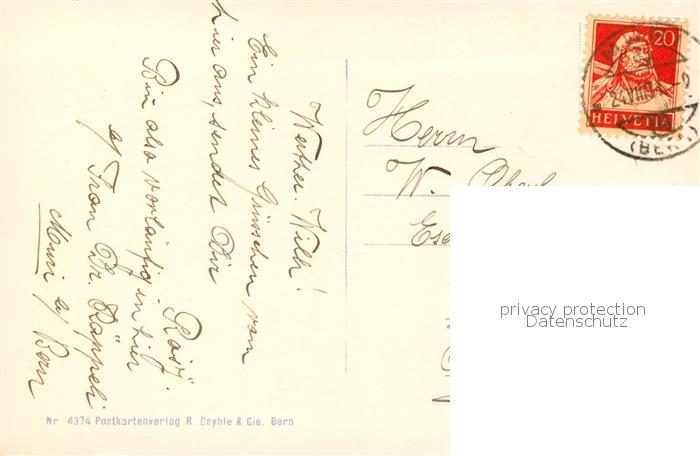 Werther Willi!
Ein kleines Grüsschen von
hier aus, sendet Dir
Rösj.
Bin also vorläufig in hier
b/ Frau Dr. Käppeli
Muri b/ Bern
Herrn
W.
20
HELVETIA
24.VIII
(BERN)
privacy protection
Datenschutz
Nr 4374 Postkartenverlag R. Deyhle & Cie. Bern